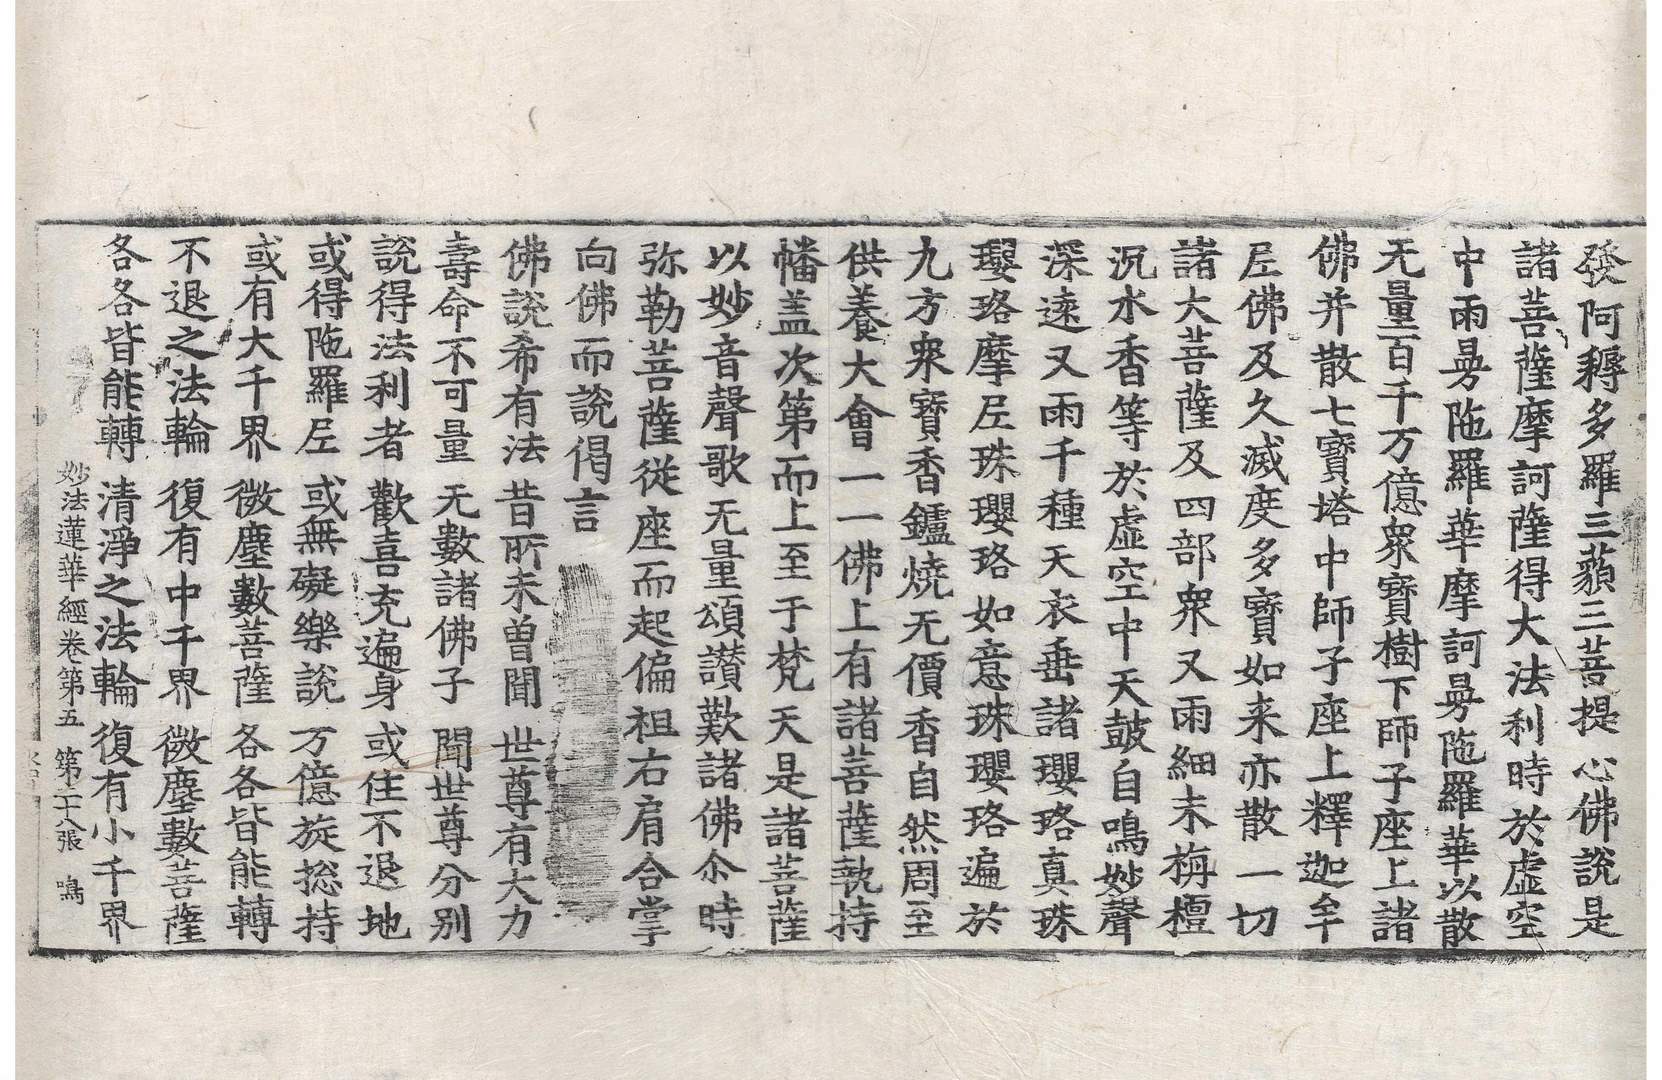 發阿耨多羅三藐三菩提心佛說是
諸菩薩摩訶薩得大法利時於虛空
中雨曼陁羅華摩訶曼陁羅華以散
无量百千万億衆寶樹下師子座上諸
佛并散七寶塔中師子座上釋迦牟
尼佛及久滅度多寶如来亦散一切
諸大菩薩及四部衆又雨細末栴檀
沉水香等於虛空中天鼓自鳴妙聲
深遠又雨千種天衣垂諸瓔珞真珠
瓔珞摩尼珠瓔珞如意珠瓔珞遍於
九方衆寶香鑪燒无價香自然周至
供養大會一一佛上有諸菩薩執持
幡盖次第而上至于梵天是諸菩薩
以妙音聲歌无量頌讃歎諸佛尒時
弥勒菩薩從座而起偏袒右肩合掌
向佛而說偈言
佛說希有法 昔所未曾聞 世尊有大力
壽命不可量 无數諸佛子 聞世尊分别
說得法利者 歡喜充遍身 或住不退地
或得陁羅尼 或無礙樂說 万億旋捴持
或有大千界 微塵數菩薩 各各皆能轉
不退之法輪 復有中千界 微塵數菩薩
各各皆能轉 清淨之法輪 復有小千界
妙法蓮華經卷第五 第二十八張 鳴